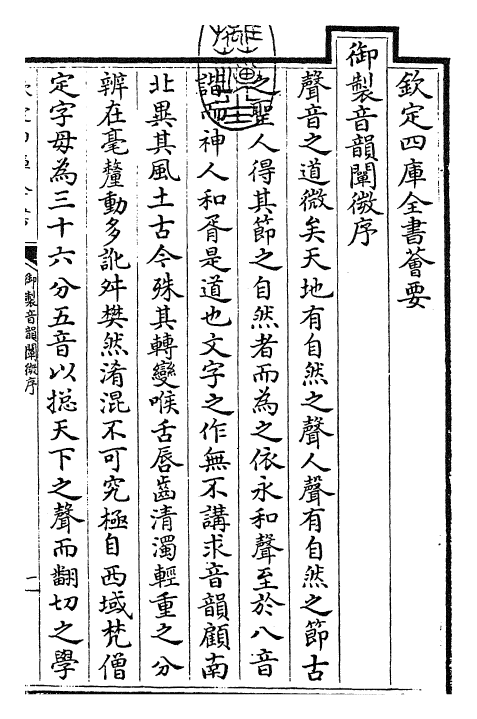 欽定四庫全書薈要
御製音韻闡微序
聲音之道微矣天地有自然之聲人聲有自然之節古
之聖人得其節之自然者而為之依永和聲至於八音
諧而神人和胥是道也文字之作無不講求音韻顧南
北異其風土古今殊其轉變喉舌唇齒清濁輕重之分
辨在毫釐動多訛舛樊然淆混不可究極自西域梵僧
定字母為三十六分五音以揔天下之聲而翻切之學
御製音韻闡微序
一